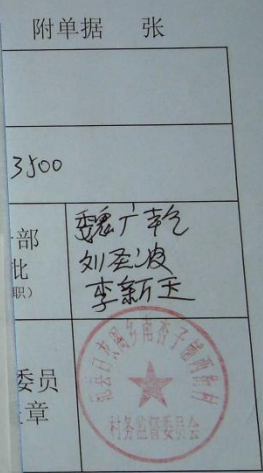 附单据 张
3500
部
批
职）
魏广乾
刘圣波
李新玉
委员
章
村务监督委员会